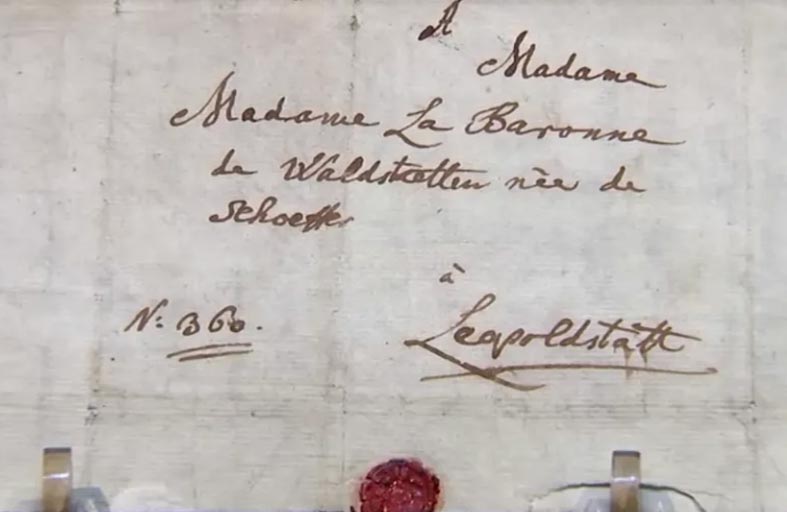 A
Madame
Madame La Baronne
de Waldstætten nèe de
Schoeffer
à
N: 360.
Leopoldstätt